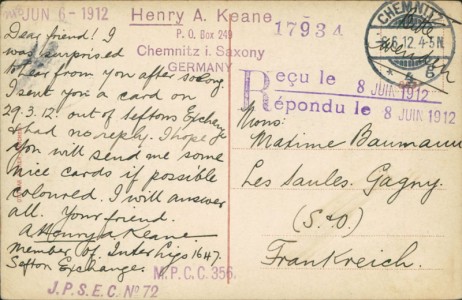 JUN 6-1912
Henry A. Keane
P. O. Box 249
Chemnitz i. Saxony
GERMANY
17934
CHEMNITZ
6.6.12. 4-5N.
* 5 g
bitte
wenden
Dear friend! I
was surprised
to hear from you after so long.
I sent you a card on
29.3.12. out of Seftons Exchange
& had no reply. I hope
you will send me some
nice cards if possible
coloured. I will answer
all. Your friend.
Henry A Keane.
Member of. Inter Ligs 1647.
Sefton Exchanger
M.P.C.C. 356.
J.P.S.E.C. Nº 72
Reçu le 8 JUIN 1912
Répondu le 8 JUIN 1912
Mons:
Maxime Baumann
Les Saules. Gagny.
(S.&O.)
Frankreich.